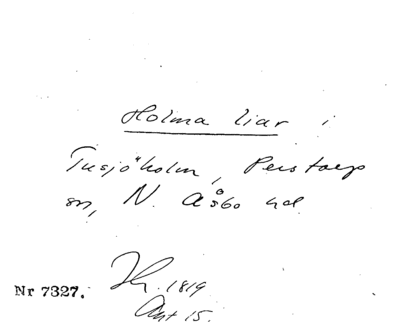 Holma liar i
Tusjöholm, Perstorp
sn, N. Åsbo hd.
Nr 7327. 1819
Akt 15.